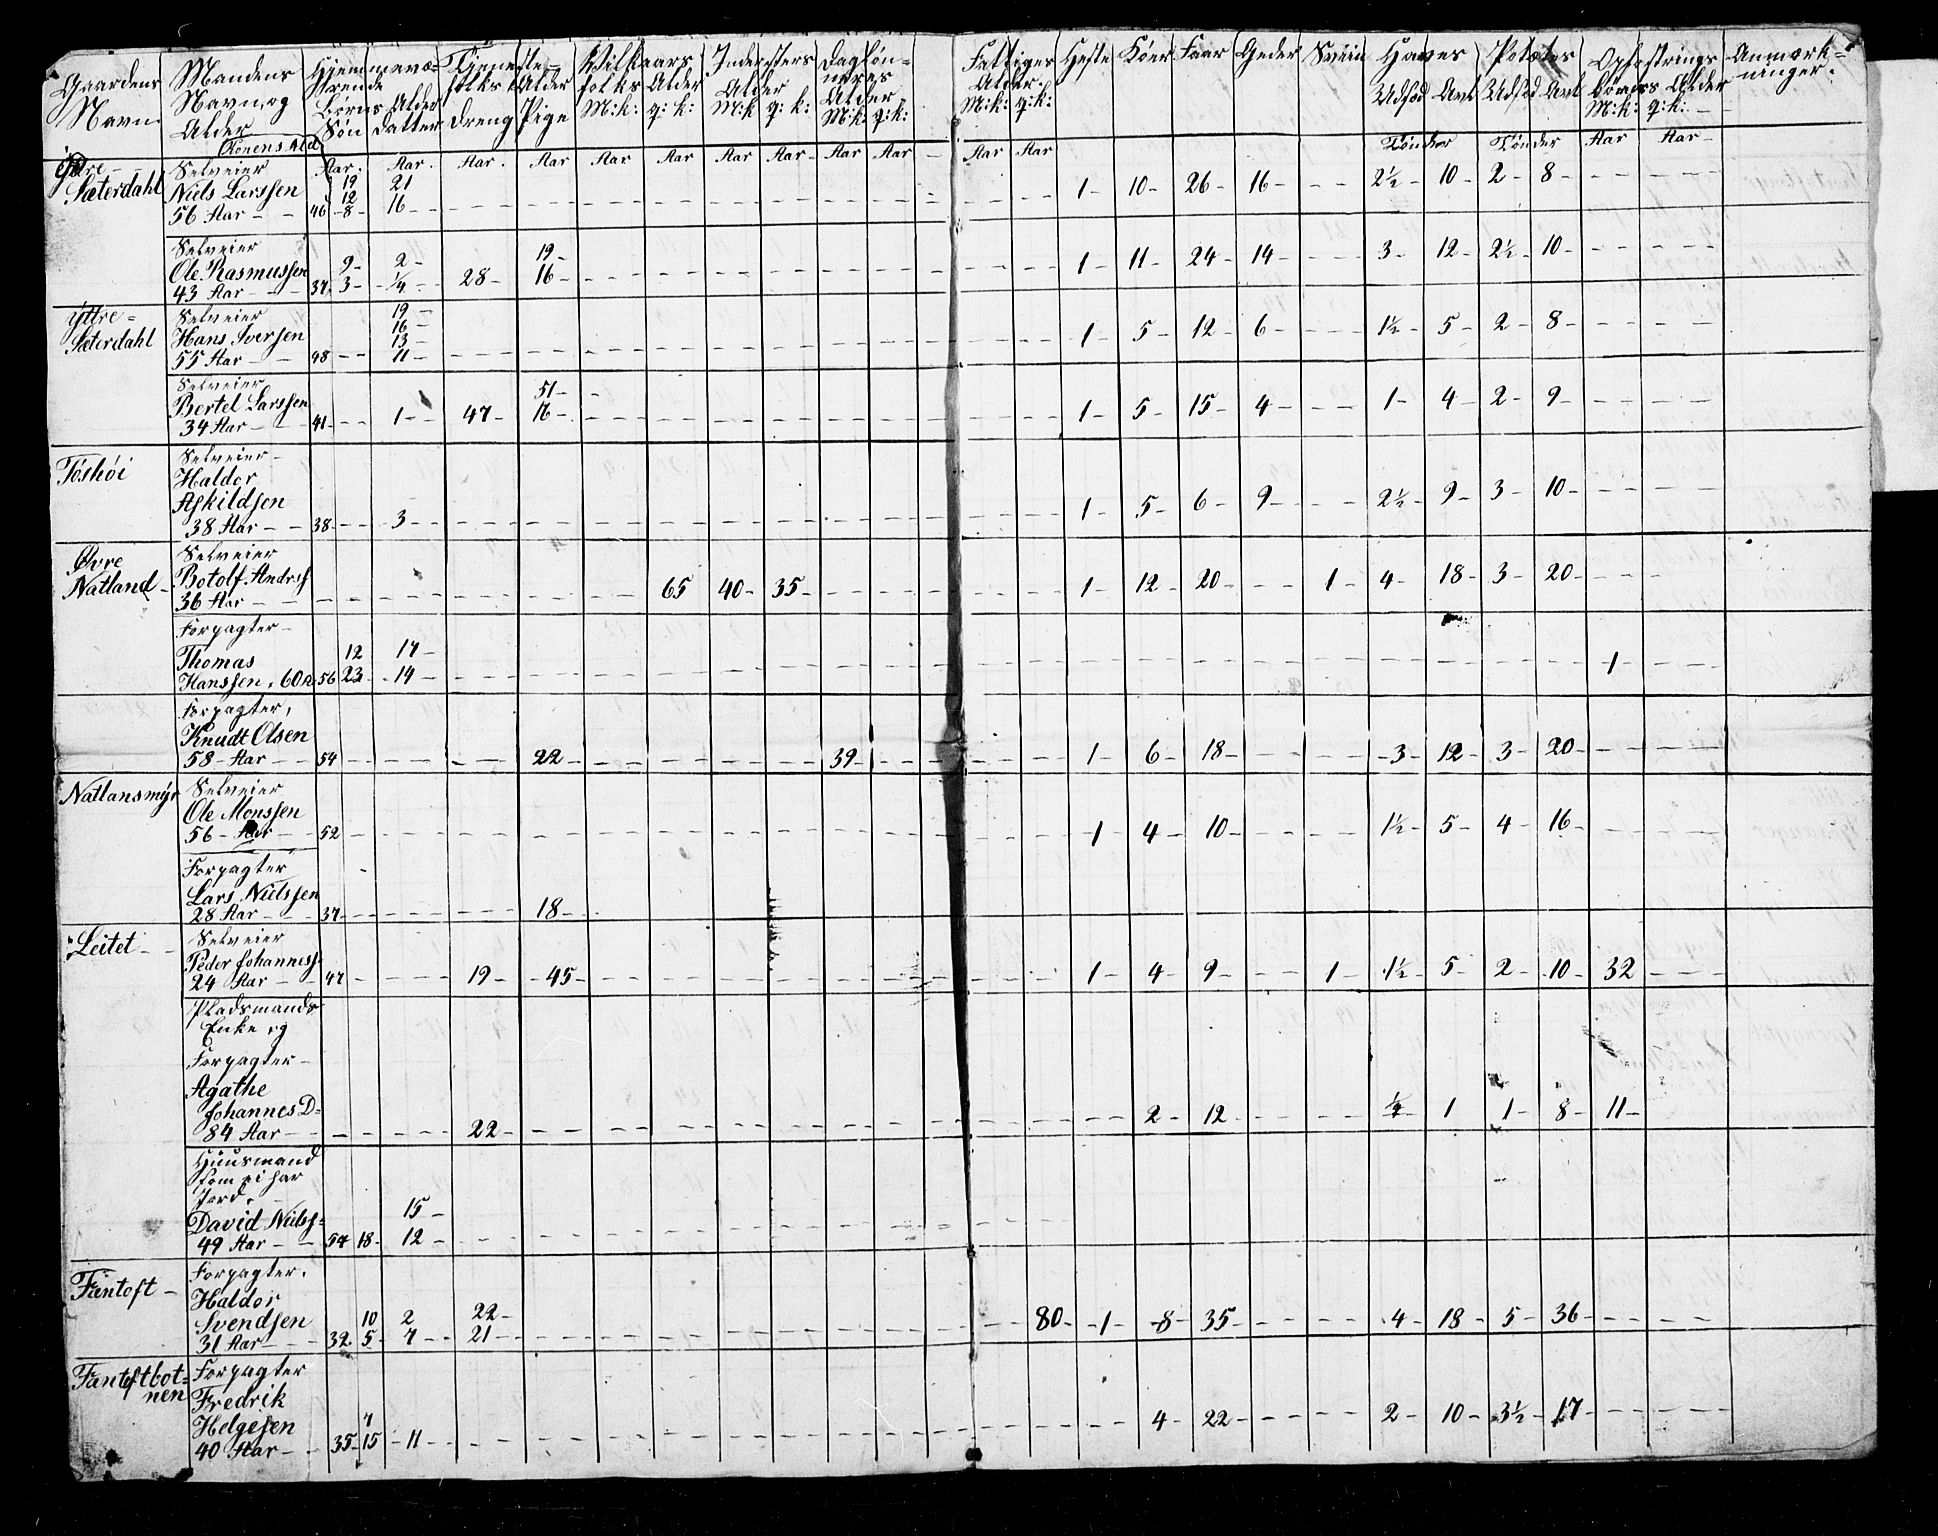 Gaardens Navn | Mandens Navn, og Alder | Konens Ald | Hjemmevæ= rende Børns Alder Søn Datter | Tjeneste= folks Alder Dreng Pige | Vilkaars folks Alder M:k: q:k: | Indersters Alder M:k q:k: | Dagløn= neres Alder M:k: q:k: | Fattiges Alder: M:k: q:k: | Heste | Køer | Faar | Geder | Sviin | Havres Udsæd Avl | Potetes Udsæd Avl | Opfostrings Børns Alder M:k: q:k: | Anmærk= ninger.
Aar. Aar. Aar. Aar Aar Aar Aar Aar Aar Aar – Aar Aar Tønder Tønder Aar Aar –
Øvre – Sæterdahl
Selveier
Niels Larssen 19 21
12
56 Aar – – 46 – 8 – 16 – – 1 – 10 – 26 – 16 – – – 2½ – 10 – 2 – 8 –
Selveier 19 –
Ole Rasmussen 9 – 2 –
43 Aar – – – 37. 3 – – ¼ – – 28 – 16 – – 1 – 11 – 24 – 14 – – – 3 – 12 – 2½ – 10 –
Yttre = Sæterdahl
Selveier 19 –
Hans Iversen 16 –
13 –
55 Aar – – 48 – – 11 – – 1 – 5 – 12 – 6 – – – 1½ – 5 – 2 – 8 –
Selveier
Bertel Larssen 51 –
34 Aar – – 41 – – – 1 – 47 – 16 – – 1 – 5 – 15 – 4 – – – 1 – 4 – 2 – 9 –
Töshøi
Selveier –
Haldor
Askildsen
38 Aar – – 38 – – – 3 – – 1 – 5 – 6 – 9 – – – 2½ – 9 – 3 – 10 –
Øvre Natland –
Selveier
Botolf Andrs
36 Aar – – 65 40 – 35 – – 1 – 12 – 20 – – – 1 – 4 – 18 – 3 – 20 –
Forpagter –
Thomas 12 17 –
Hanssen, 60 A 56 23 – – 14 – – 1 –
Forpagter,
Knudt Olsen
58 – Aar – – 54 – – 22 – – 39 – – 1 – 6 – 18 – – – 3 – 12 – 3 – 20 –
Natlansmÿr
Selveier
Ole Monssen
56 – Aar – – 52 – – 1 – 4 – 10 – – – 1½ – 5 – 4 – 16 –
Forpagter
Lars Nielssen
28 Aar – – – 37 – – 18 –
Leitet –
Selveier
Peder Johanness
24 Aar – – 47 – – 19 – – 45 – – 1 – 4 – 9 – – – 1 – 1½ – 5 – 2 – 10 – 32 –
Pladsmands
Enke og
Forpagter –
Agathe
Johannes D=
84 Aar – – 22 – – 2 – 12 – – ¼ – 1 1 – 8 – 11 –
Huusmand
som ei har
Jord.
David Nielss= 15 –
49 Aar – – 54 18 – 12 –
Fantoft –
Forpagter.
Haldor
Svendsen 10 2 22 –
31 Aar – – 32. 5 – 7 – – 21 – – 80 – 1 – 8 – 35 – – – 4 – 18 – 5 – 36 –
Fantoftbot= nen
Forpagter
Fredrik
Helgesen 7
40 Aar – – 35 – 15 – 11 – – 4 – 22 – – – 2 – 10 – 3½ – 17 –